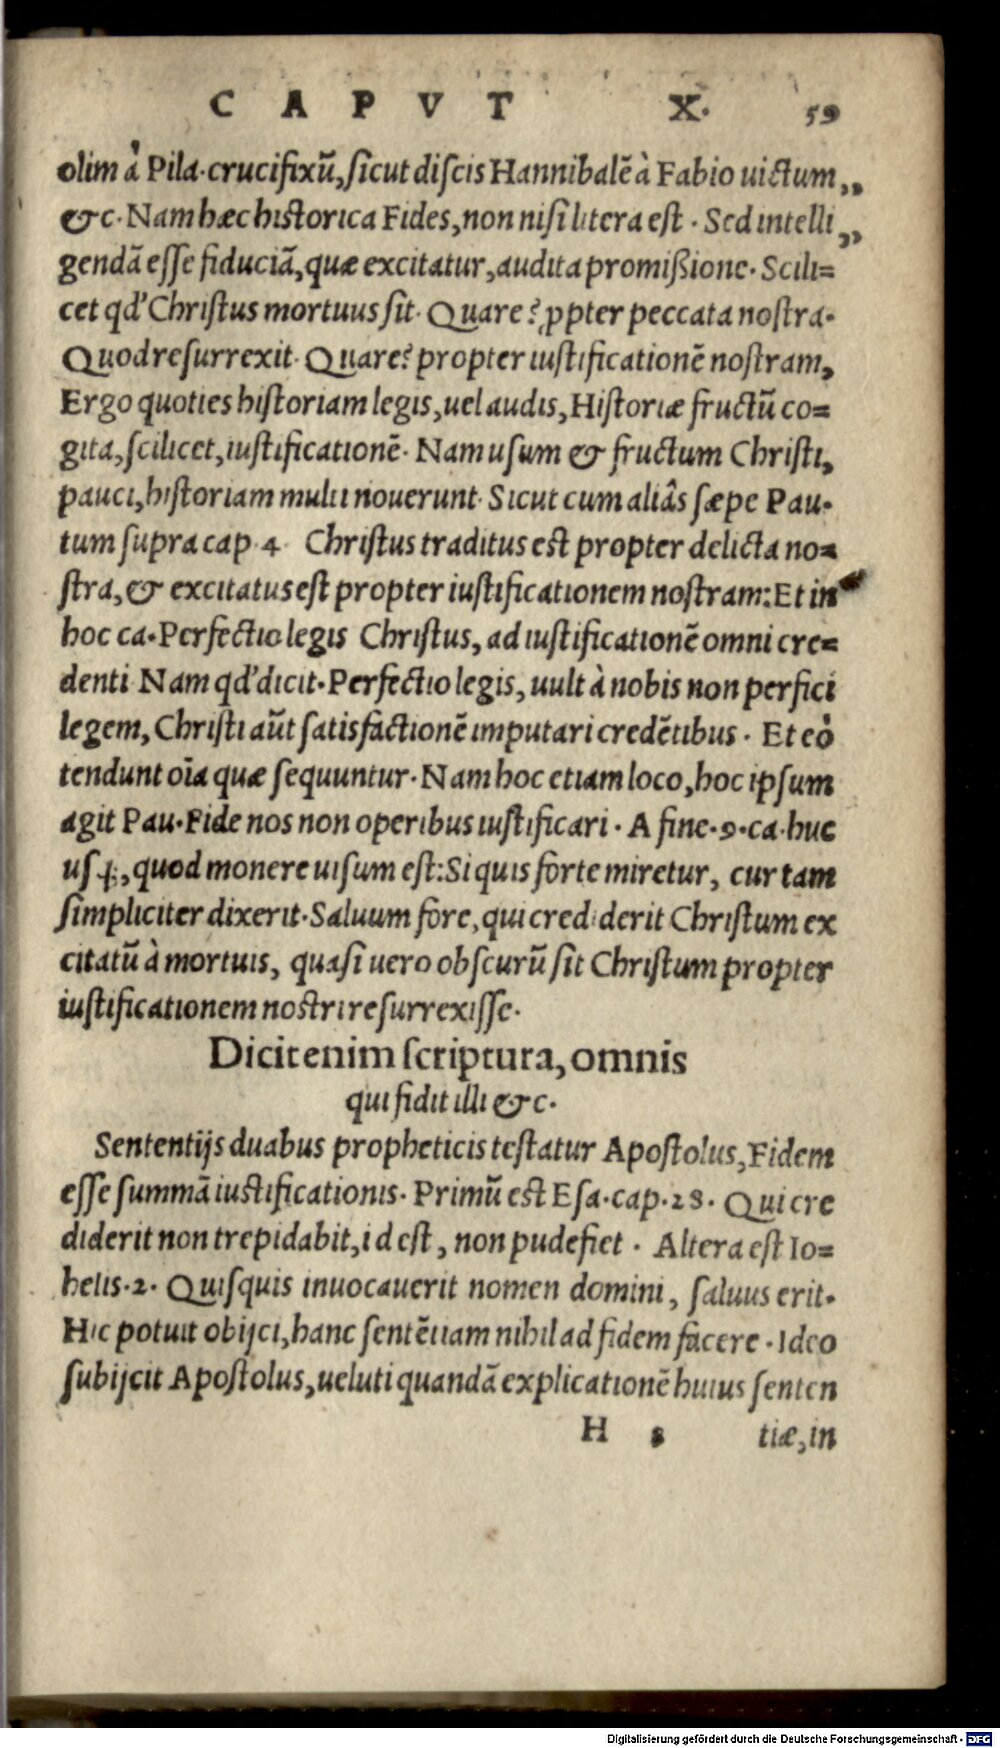 CAPVT X. 59
olim à Pila. crucifixū, sicut discis Hannibalē à Fabio uictum,,,
&c. Nam hæc historica Fides, non nisi litera est. Sed intelli,,
gendā esse fiduciā, quæ excitatur, audita promißione. Scili=
cet qd' Christus mortuus sit. Quare? ꝓpter peccata nostra.
Quod resurrexit. Quare? propter iustificationē nostram,
Ergo quoties historiam legis, uel audis, Historiæ fructū co=
gita, scilicet, iustificationē. Nam usum & fructum Christi,
pauci, historiam multi nouerunt. Sicut cum aliâs sæpe Pau.
tum supra cap. 4 Christus traditus est propter delicta no=
stra, & excitatus est propter iustificationem nostram: Et in
hoc ca. Perfectio legis Christus, ad iustificationē omni cre=
denti Nam qd' dicit. Perfectio legis, uult à nobis non perfici
legem, Christi aūt satisfactionē imputari credētibus. Et eò
tendunt oīa quæ sequuntur. Nam hoc etiam loco, hoc ipsum
agit Pau. Fide nos non operibus iustificari. A fine. 9. ca. huc
usq;, quod monere uisum est: Si quis forte miretur, cur tam
simpliciter dixerit. Saluum fore, qui crediderit Christum ex
citatū à mortuis, quasi uero obscurū sit Christum propter
iustificationem nostri resurrexisse.
Dicit enim scriptura, omnis
qui fidit illi &c.
Sententijs duabus propheticis testatur Apostolus, Fidem
esse summā iustificationis. Primū est Esa. cap. 28. Qui cre
diderit non trepidabit, id est, non pudefiet. Altera est Io=
helis. 2. Quisquis inuocauerit nomen domini, saluus erit.
Hic potuit obijci, hanc sentētiam nihil ad fidem facere. Ideo
subijcit Apostolus, ueluti quandā explicationē huius senten
H tiæ, in
Digitalisierung gefördert durch die Deutsche Forschungsgemeinschaft - DFG